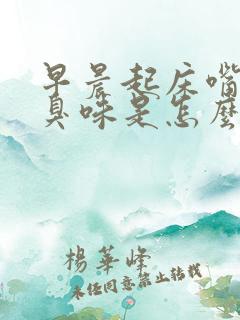 早晨起床嘴
臭味是怎麼
楊華峰
未经同意禁止转载